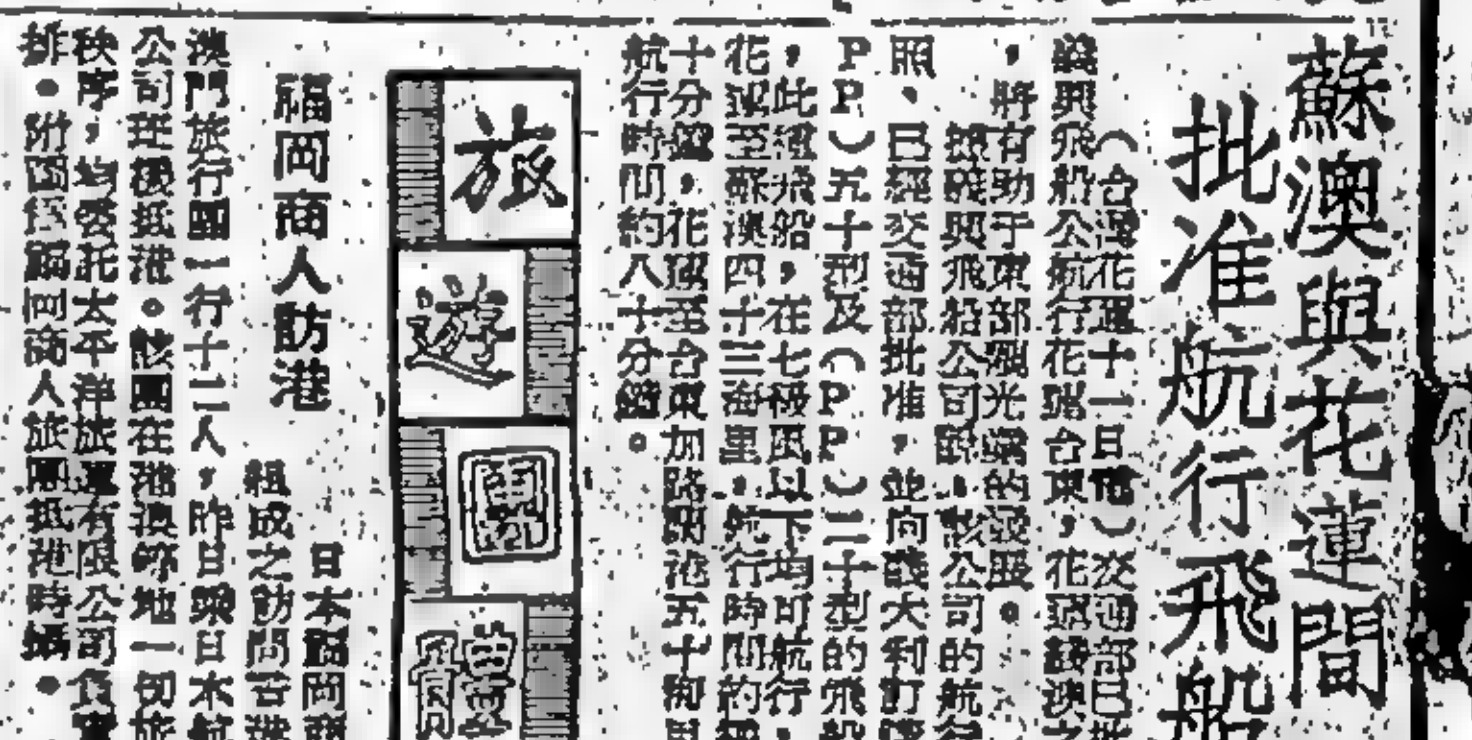 蘇澳與花蓮間
批准航行飛船
（台灣花蓮十一日電）交通部已
義興飛船公航行花蓮台東，花蓮蘇澳之
，將有助于東部觀光業的發展。
據義興飛船公司說，該公司的航行
照、已經交通部批准，並向義大利訂購
PP）五十型及（PP）二十型的飛船
，此種飛船，在七級風以下均可航行，
花蓮至蘇澳四十三海里，航行時間約
十分鐘，花蓮至台東加路蘭港五十
航行時間約八十分鐘。
旅遊團體
福岡商人訪港
日本福岡商
組成之訪問香港
澳門旅行團一行十二人，昨日乘日本航
公司班機抵港。該團在港澳時地一切旅
秩序，均委托太平洋旅運有限公司負責
排。附圖為福岡商人旅團抵港時攝。